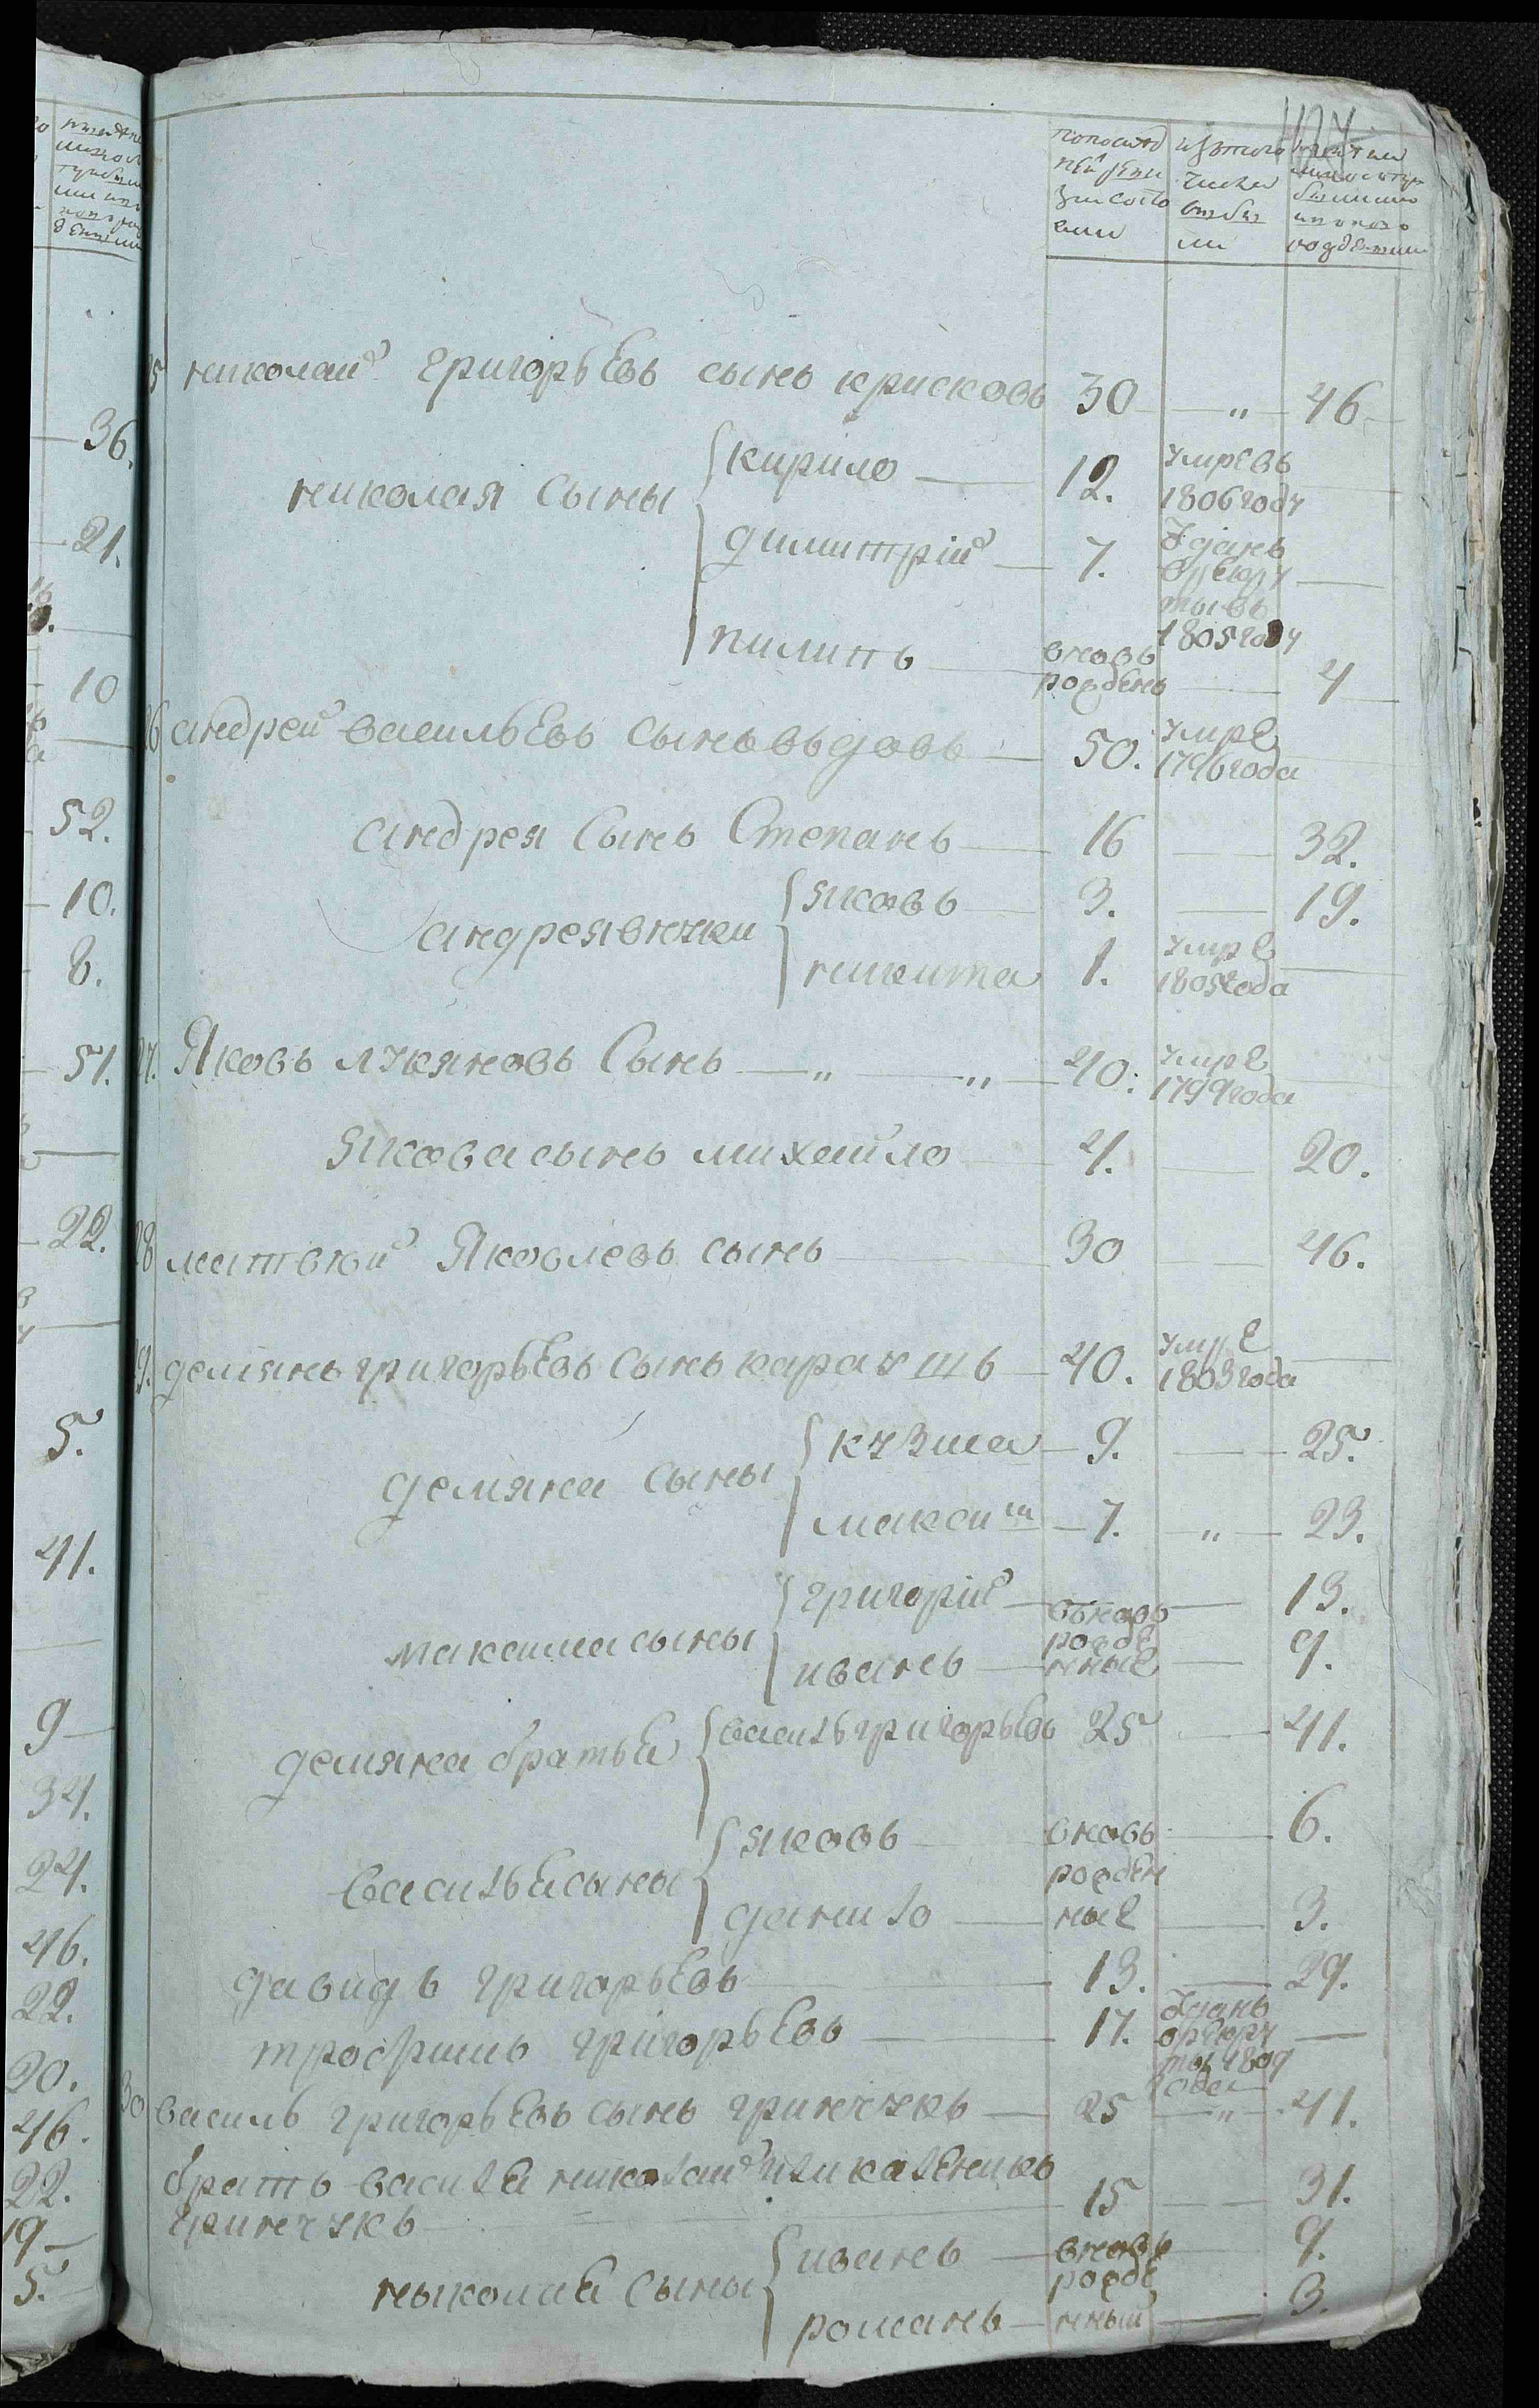 по последней ревизии состояли
из того числа выбыли
ныне на лицо с прибылыми и вновь рожденными
25 николай григорьевъ сынъ крисковъ 30 — „ — 46
николая сыны
кирило — 12. умре въ 1806 году —
димитрій — 7. Зданъ в рекруты въ 1805 году —
пилипъ — вновь рожденъ — 4
26 андрей васильевъ сынъ въдовъ — 50. умре 1796 года
андрея сынъ Степанъ — 16 — 32.
андрея внуки
яковъ — 3. — 19.
никита — 1. умре 1805 года —
27. Яковъ лукяновъ Сынъ — „ — „ — 40. умре 1799 года —
якова сынъ михайло — 4. — 20.
28 матвѣй Яковлевъ сынъ — 30 — 46.
29. демянъ григорьевъ сынъ карауш — 40. умре 1803 года —
демяна сыны
кузма — 9. — 25.
максим — 7. — „ — 23.
максима сыны
григорій — вьновь рожденные — 13.
иванъ — 9.
демяна братья
василь григорьевъ 25 — 41.
василья сыны
яковъ — вновь рожденные — 6.
данило — 3.
давидъ григорьевъ — 13. — 29.
трофимъ григорьевъ — 17. Зданъ в рекруты 1809 года —
30 василь григорьевъ сынъ гринчукъ — 25 — „ — 41.
братъ василя николай
гринчукъ — 15 — 31.
николая сыны
иванъ — вновь рожденный — 9.
романъ — 3.
36.
21.
10
52.
10.
8.
51.
22.
5.
41.
9
34.
24.
46.
22.
20.
46.
22.
19
5.